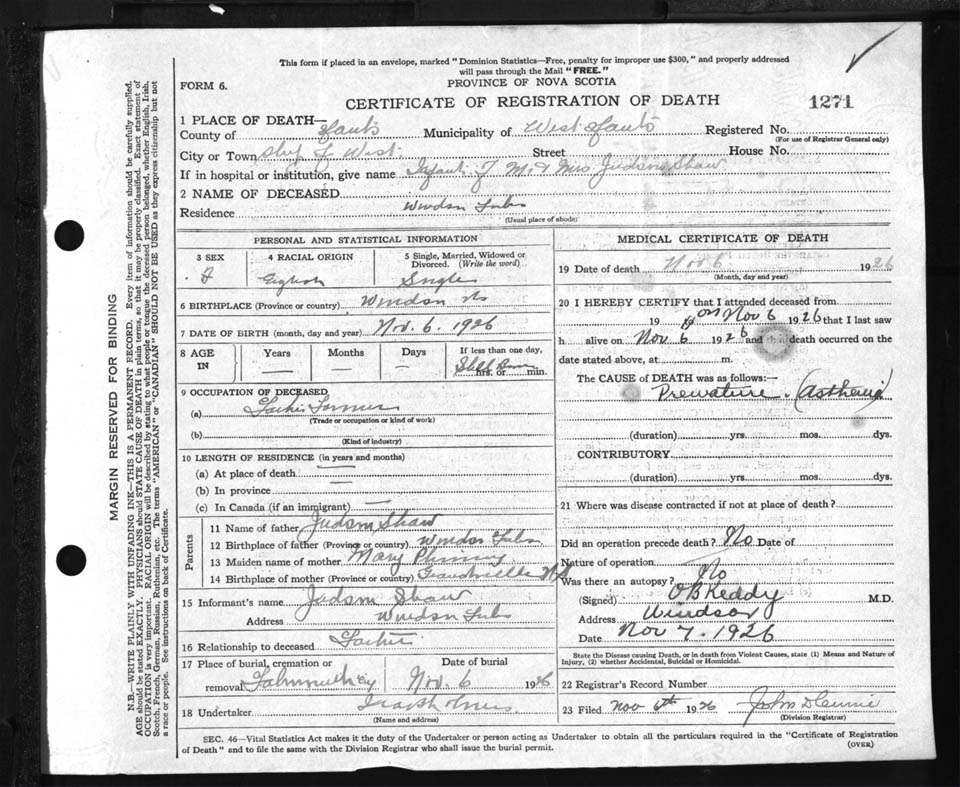 This form if placed in an envelope, marked "Dominion Statistics—Free, penalty for improper use $300," and properly addressed
will pass through the Mail "FREE."
FORM 6.
PROVINCE OF NOVA SCOTIA
CERTIFICATE OF REGISTRATION OF DEATH
1271
1 PLACE OF DEATH—
County of Hants Municipality of West Hants Registered No.
(For use of Registrar General only)
City or Town West Street House No.
If in hospital or institution, give name Infant of Mr & Mrs Judson Shaw
2 NAME OF DECEASED
Residence Windsor
(Usual place of abode)
PERSONAL AND STATISTICAL INFORMATION
3 SEX 4 RACIAL ORIGIN 5 Single, Married, Widowed or Divorced. (Write the word)
F English Single
6 BIRTHPLACE (Province or country) Windsor NS
7 DATE OF BIRTH (month, day and year) Nov. 6. 1926
8 AGE IN Years Months Days If less than one day,
hrs. or min.
9 OCCUPATION OF DECEASED
(a) Farmer
(Trade or occupation or kind of work)
(b)
(Kind of industry)
10 LENGTH OF RESIDENCE (in years and months)
(a) At place of death
(b) In province
(c) In Canada (if an immigrant)
Parents
11 Name of father Judson Shaw
12 Birthplace of father (Province or country) Windsor
13 Maiden name of mother Mary
14 Birthplace of mother (Province or country) NS
15 Informant's name Judson Shaw
Address Windsor
16 Relationship to deceased Father
17 Place of burial, cremation or removal Falmouth Date of burial Nov. 6 1926
18 Undertaker
(Name and address)
MEDICAL CERTIFICATE OF DEATH
19 Date of death Nov 6 1926
(Month, day and year)
20 I HEREBY CERTIFY that I attended deceased from
19 on Nov 6 1926 that I last saw
h alive on Nov 6 1926 and death occurred on the
date stated above, at m.
The CAUSE of DEATH was as follows:—
Premature. (Asthenia)
(duration) yrs. mos. dys.
CONTRIBUTORY
(duration) yrs. mos. dys.
21 Where was disease contracted if not at place of death?
Did an operation precede death? No Date of
Nature of operation
Was there an autopsy? No
(Signed) O B Keddy M.D.
Address Windsor
Date Nov 7. 1926
State the Disease causing Death, or in death from Violent Causes, state (1) Means and Nature of
Injury, (2) whether Accidental, Suicidal or Homicidal.
22 Registrar's Record Number
23 Filed Nov 1926 John
(Division Registrar)
SEC. 46—Vital Statistics Act makes it duty of the Undertaker or person acting as Undertaker to obtain all the particulars required in the "Certificate of Registration
of Death" and to file the same with the Division Registrar who shall issue the burial permit.
(OVER)
MARGIN RESERVED FOR BINDING
N.B.—WRITE PLAINLY WITH UNFADING INK—THIS IS A PERMANENT RECORD. Every item of information should be carefully supplied.
AGE should be stated EXACTLY. PHYSICIANS should STATE CAUSE OF DEATH in plain terms, so that it may be properly classified. Exact statement of
OCCUPATION is very important. RACIAL ORIGIN will be described by stating to what people or tongue the deceased person belonged, whether English, Irish,
Scotch, French, German, Russian, Ruthenian, etc. The terms "AMERICAN" or "CANADIAN" SHOULD NOT BE USED as they express citizenship but not
a race or people. See instructions on back of Certificate.